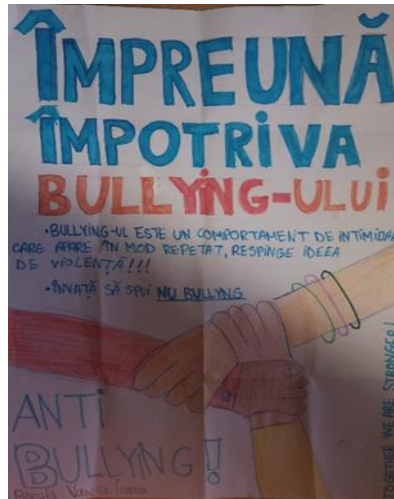 ÎMPREUNĂ
ÎMPOTRIVA
BULLYING-ULUI
•BULLYING-UL ESTE UN COMPORTAMENT DE INTIMIDA
CARE APARE ÎN MOD REPETAT, RESPINGE IDEEA
DE VIOLENȚĂ!!!
•ÎNVAȚĂ SĂ SPUI NU BULLYNG
TOGETHER WE ARE STRONGER!
ANTI
BULLYING!